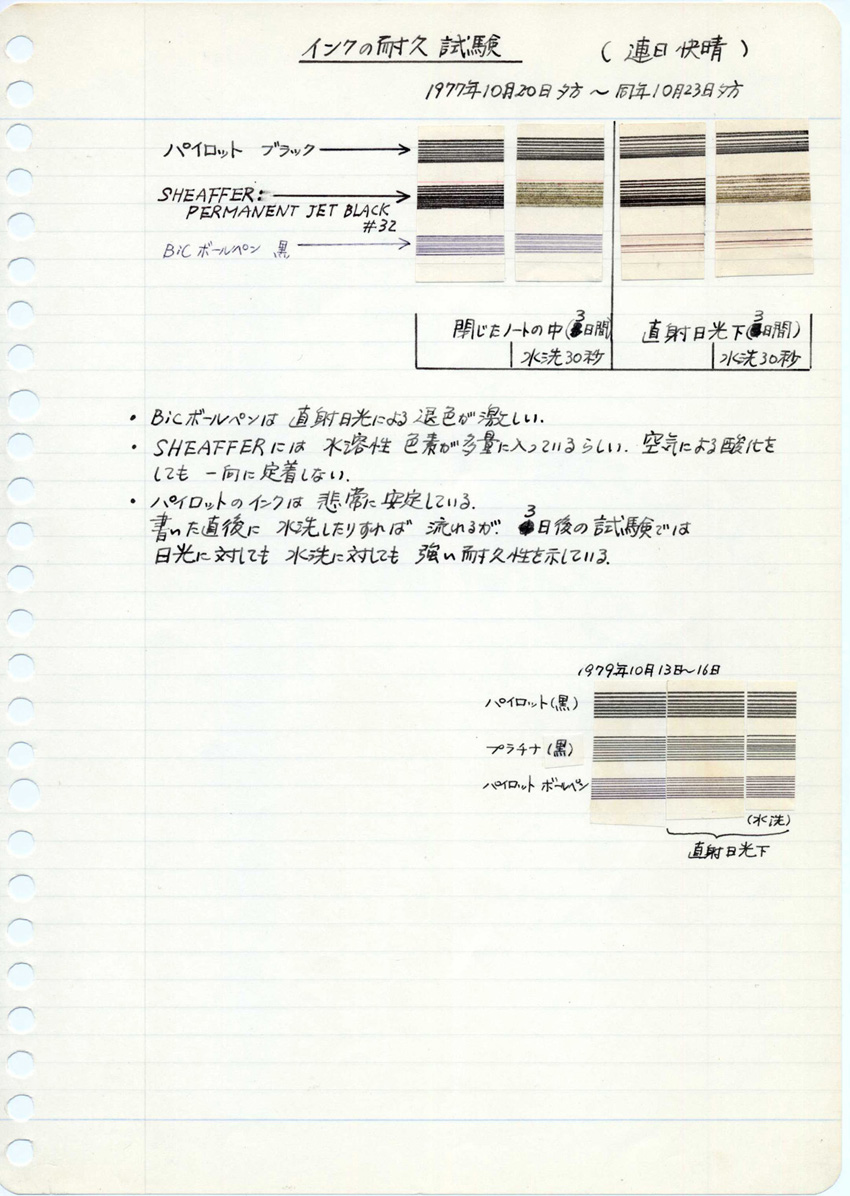 インクの耐久試験 (連日快晴)
1977年10月20日夕方〜同年10月23日夕方
パイロット ブラック
SHEAFFER:
PERMANENT JET BLACK
#32
BiC ボールペン 黒
閉じたノートの中(3日間) 直射日光下(3日間)
水洗30秒 水洗30秒
・BiCボールペンは 直射日光による退色が激しい.
・SHEAFFERには 水溶性 色素が多量に入っているらしい. 空気による酸化を
しても 一向に定着しない.
・パイロットのインクは 非常に安定している.
書いた直後に 水洗したりすれば 流れるが. 3日後の試験では
日光に対しても 水洗に対しても 強い耐久性を示している.
1979年10月13日〜16日
パイロット(黒)
プラチナ(黒)
パイロット ボールペン
(水洗)
直射日光下